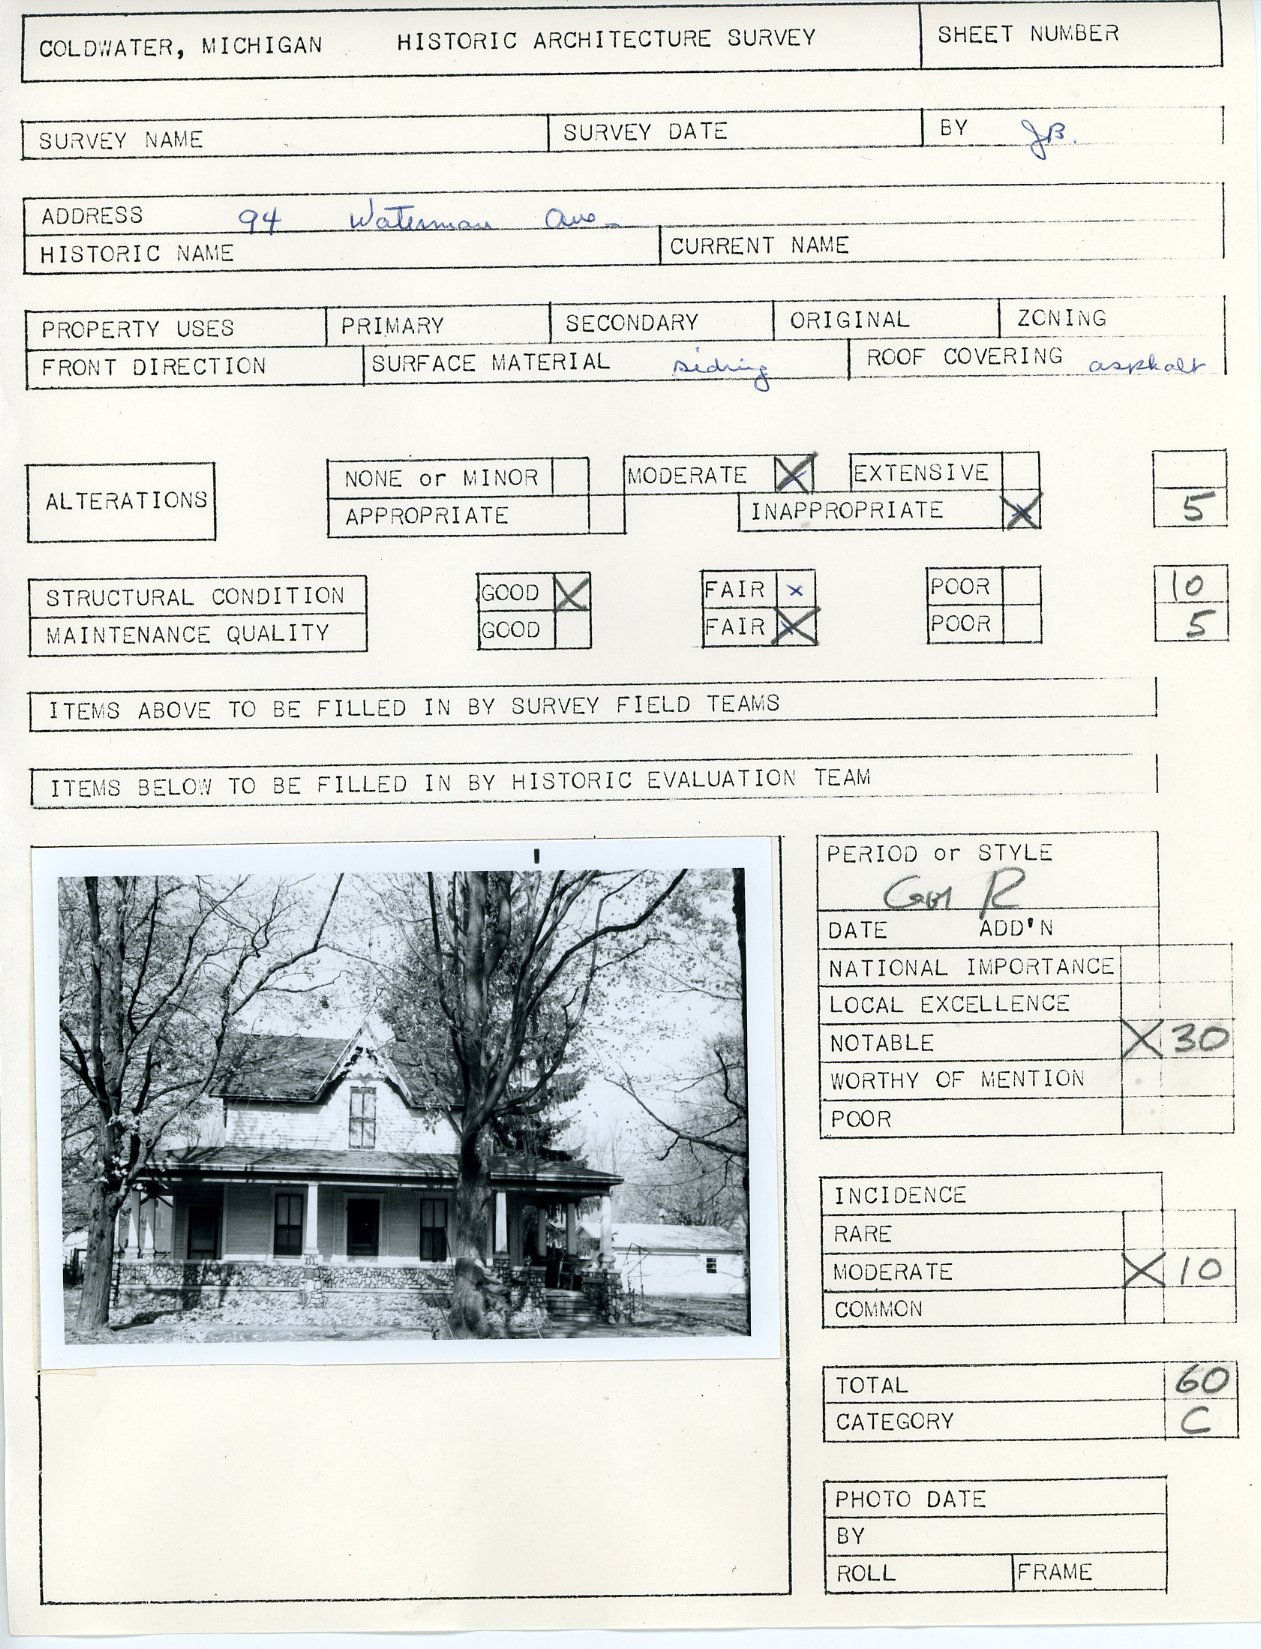 COLDWATER, MICHIGAN HISTORIC ARCHITECTURE SURVEY SHEET NUMBER
SURVEY NAME SURVEY DATE BY JB.
ADDRESS 94 Waterman Ave
HISTORIC NAME CURRENT NAME
PROPERTY USES PRIMARY SECONDARY ORIGINAL ZONING
FRONT DIRECTION SURFACE MATERIAL siding ROOF COVERING asphalt
ALTERATIONS NONE or MINOR MODERATE X EXTENSIVE
APPROPRIATE INAPPROPRIATE X 5
STRUCTURAL CONDITION GOOD X FAIR x POOR 10
MAINTENANCE QUALITY GOOD FAIR X POOR 5
ITEMS ABOVE TO BE FILLED IN BY SURVEY FIELD TEAMS
ITEMS BELOW TO BE FILLED IN BY HISTORIC EVALUATION TEAM
PERIOD or STYLE
R
DATE ADD'N
NATIONAL IMPORTANCE
LOCAL EXCELLENCE
NOTABLE X 30
WORTHY OF MENTION
POOR
INCIDENCE
RARE
MODERATE X 10
COMMON
TOTAL 60
CATEGORY C
PHOTO DATE
BY
ROLL FRAME